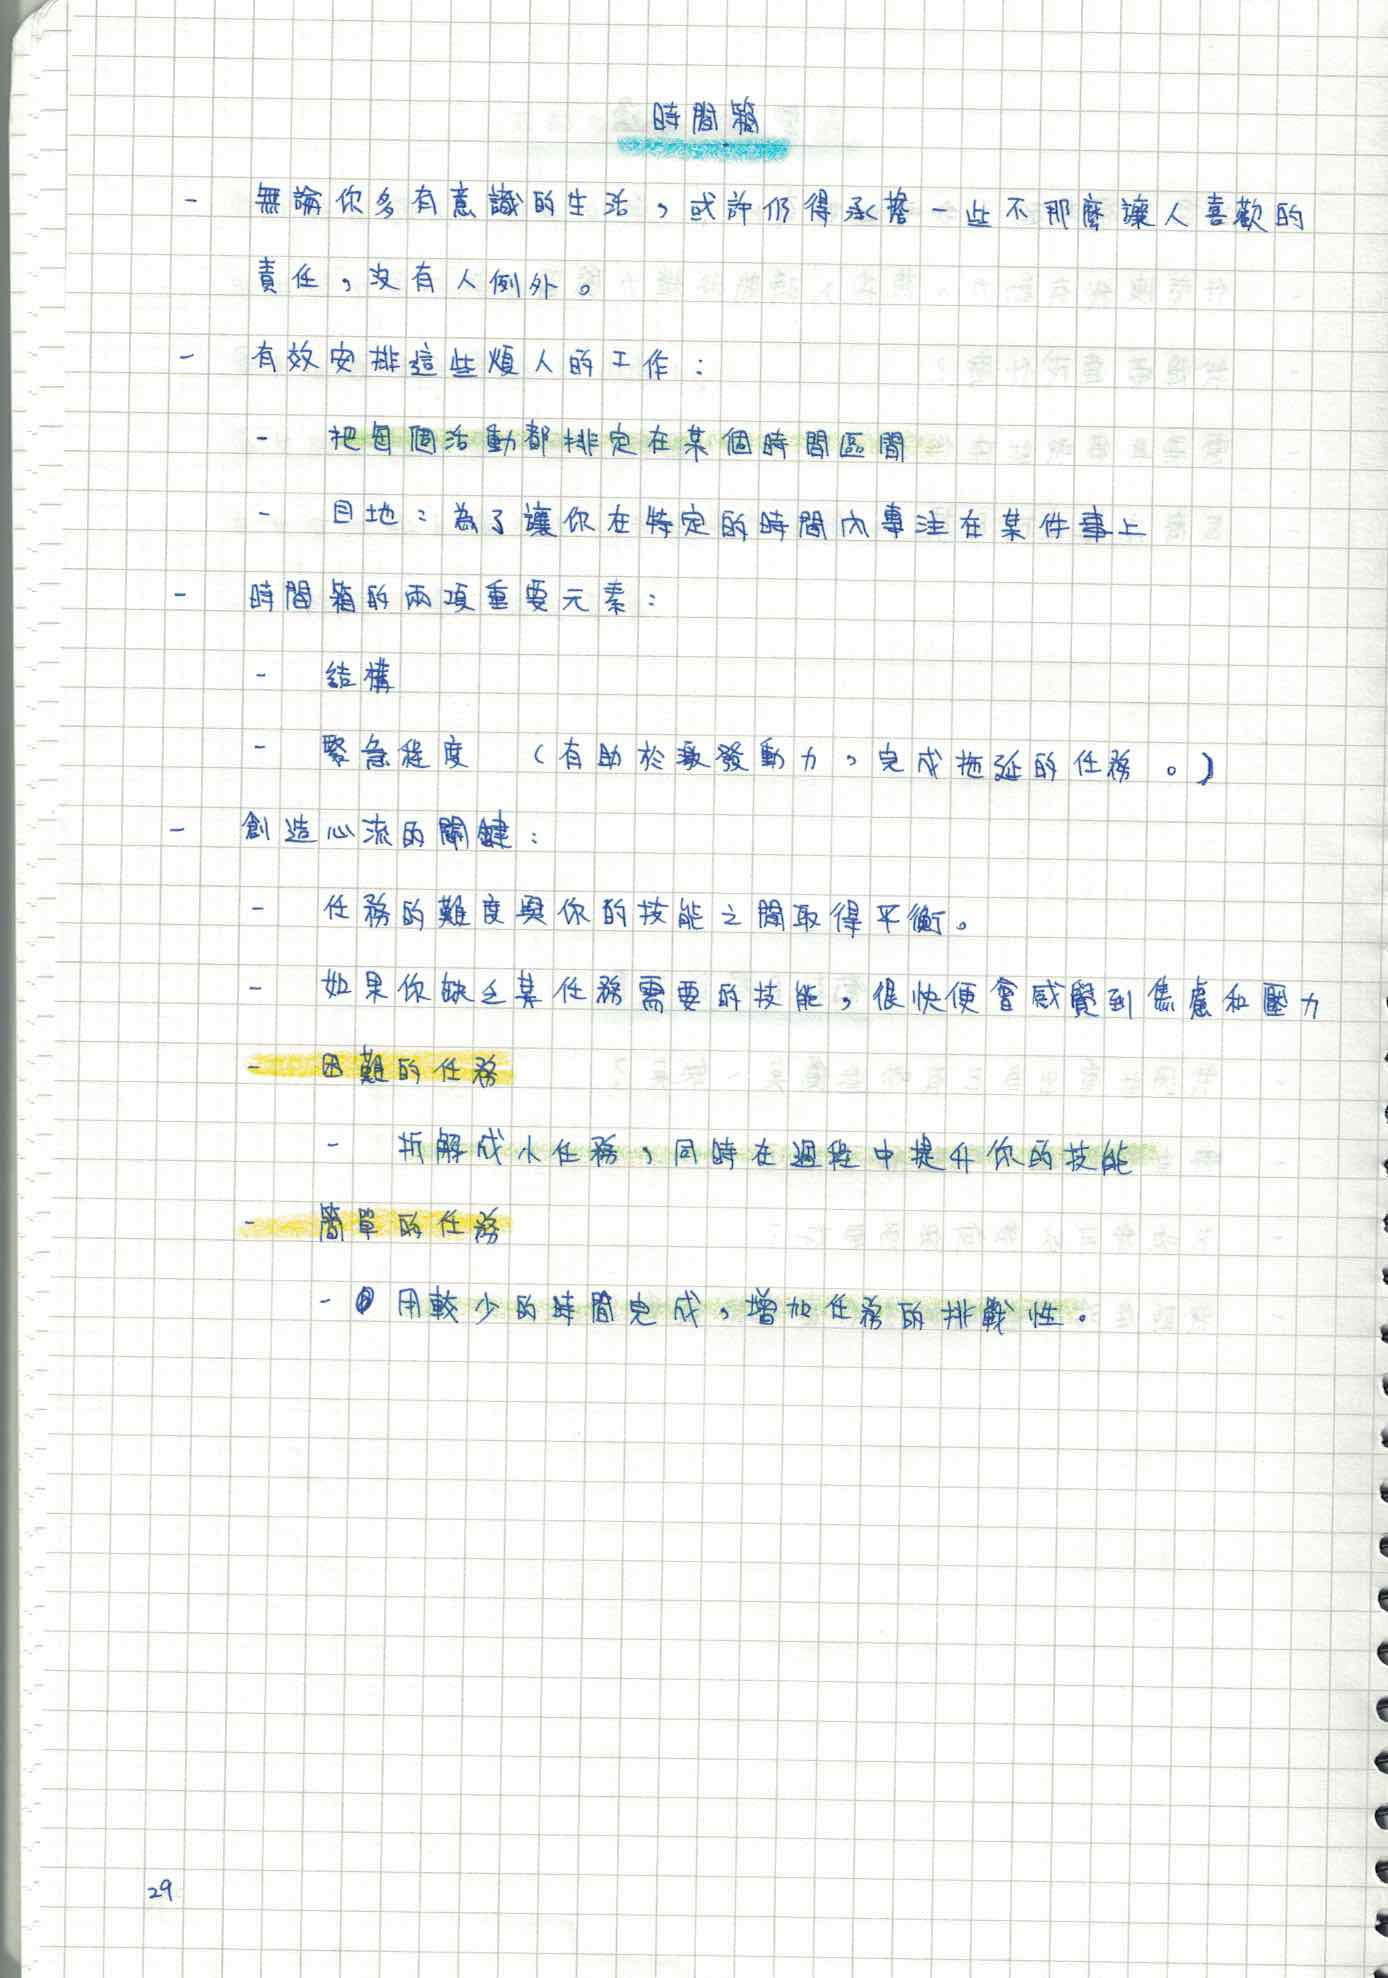 時間箱
- 無論你多有意識的生活，或許仍得承擔一些不那麼讓人喜歡的
責任，沒有人例外。
- 有效安排這些煩人的工作：
- 把每個活動都排定在某個時間區間
- 目地：為了讓你在特定的時間內專注在某件事上
- 時間箱的兩項重要元素：
- 結構
- 緊急程度 （有助於激發動力，完成拖延的任務。）
- 創造心流的關鍵：
- 任務的難度與你的技能之間取得平衡。
- 如果你缺乏某任務需要的技能，很快便會感覺到焦慮和壓力
- 困難的任務
- 拆解成小任務，同時在過程中提升你的技能
- 簡單的任務
- 用較少的時間完成，增加任務的挑戰性。
29